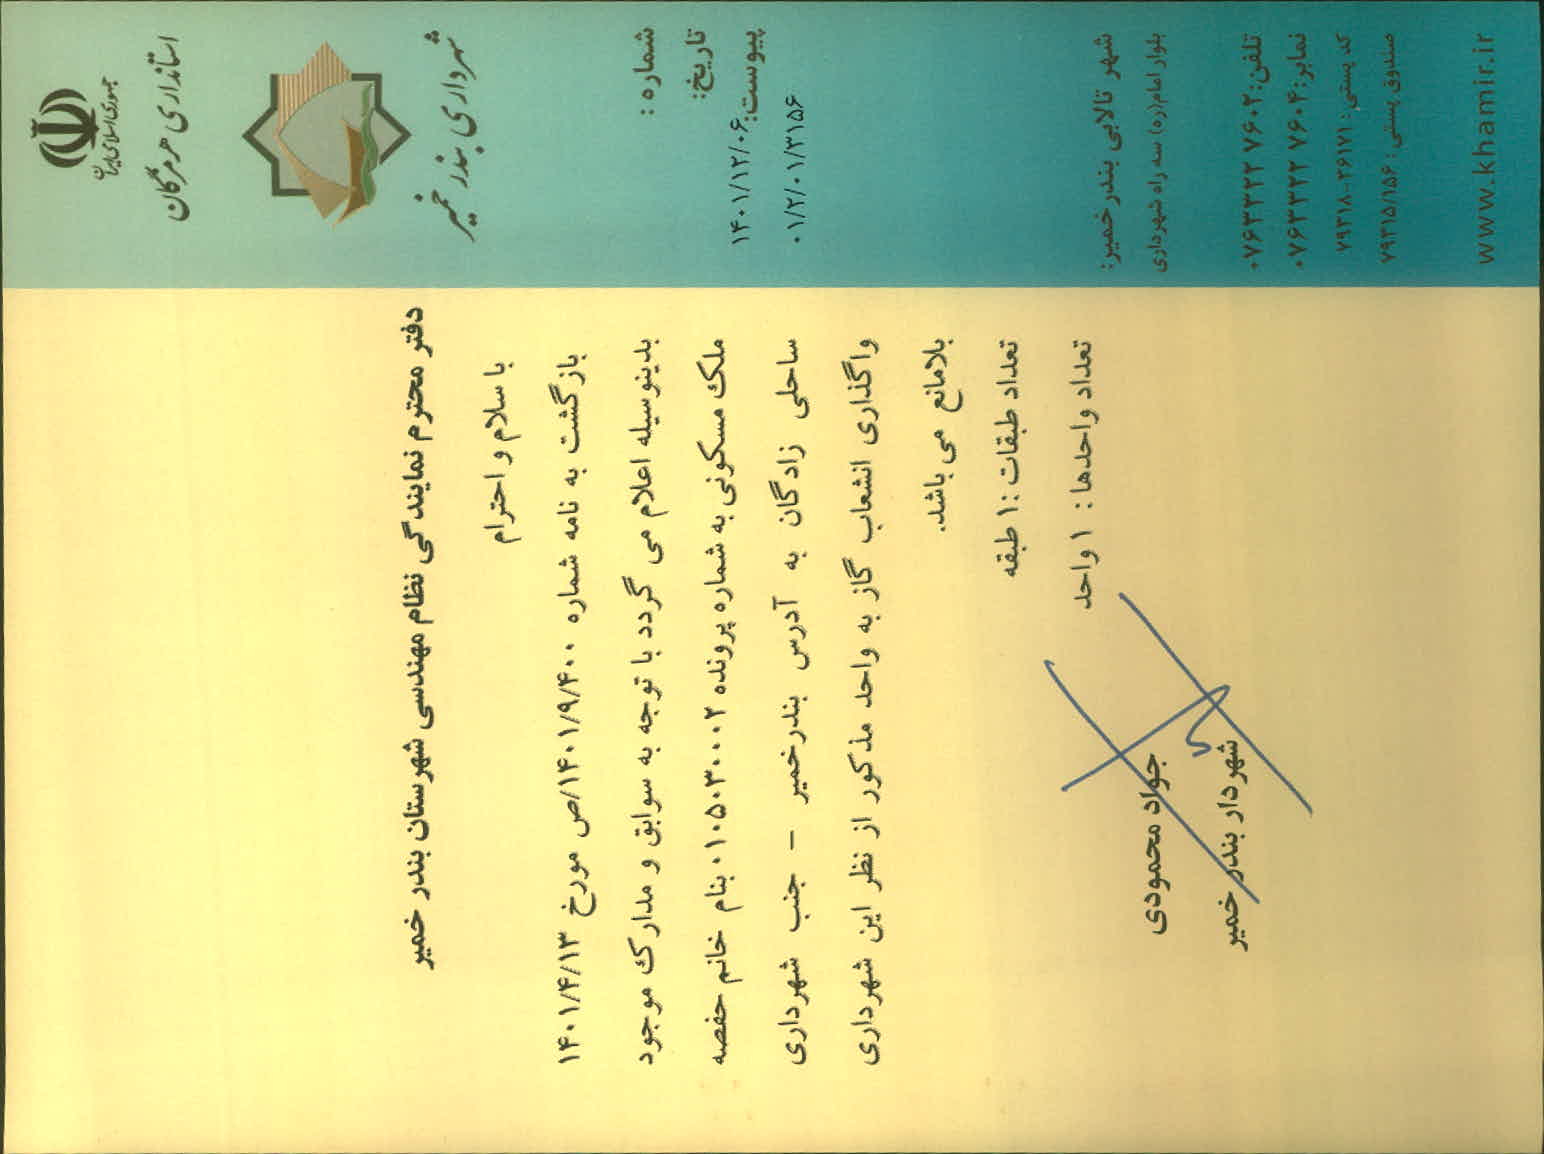 جمهوری اسلامی ایران
استانداری هرمزگان
شهرداری بندر خمیر
شماره :
تاریخ:
پیوست:
۱۴۰۱/۱۲/۰۶
۰۱/۲/۰۱/۳۱۵۶
شهر تالابی بندر خمیر:
بلوار امام(ره) سه راه شهرداری
تلفن: ۰۷۶۳۳۲۲ ۷۶۰۲
نمابر: ۰۷۶۳۳۲۲ ۷۶۰۴
کد پستی: ۷۹۳۱۸-۳۶۱۷۱
صندوق پستی: ۷۹۳۱۵/۱۵۶
www.khamir.ir
دفتر محترم نمایندگی نظام مهندسی شهرستان بندر خمیر
با سلام و احترام
بازگشت به نامه شماره ۱۴۰۱/۹/۴۰۰/ص مورخ ۱۴۰۱/۴/۱۳
بدینوسیله اعلام می گردد با توجه به سوابق و مدارک موجود
ملک مسکونی به شماره پرونده ۰۱۰۵۰۳۰۰۰۲ بنام خانم حفصه
ساحلی زادگان به آدرس بندرخمیر – جنب شهرداری
واگذاری انشعاب گاز به واحد مذکور از نظر این شهرداری
بلامانع می باشد.
تعداد طبقات :۱ طبقه
تعداد واحدها : ۱ واحد
جواد محمودی
شهردار بندر خمیر